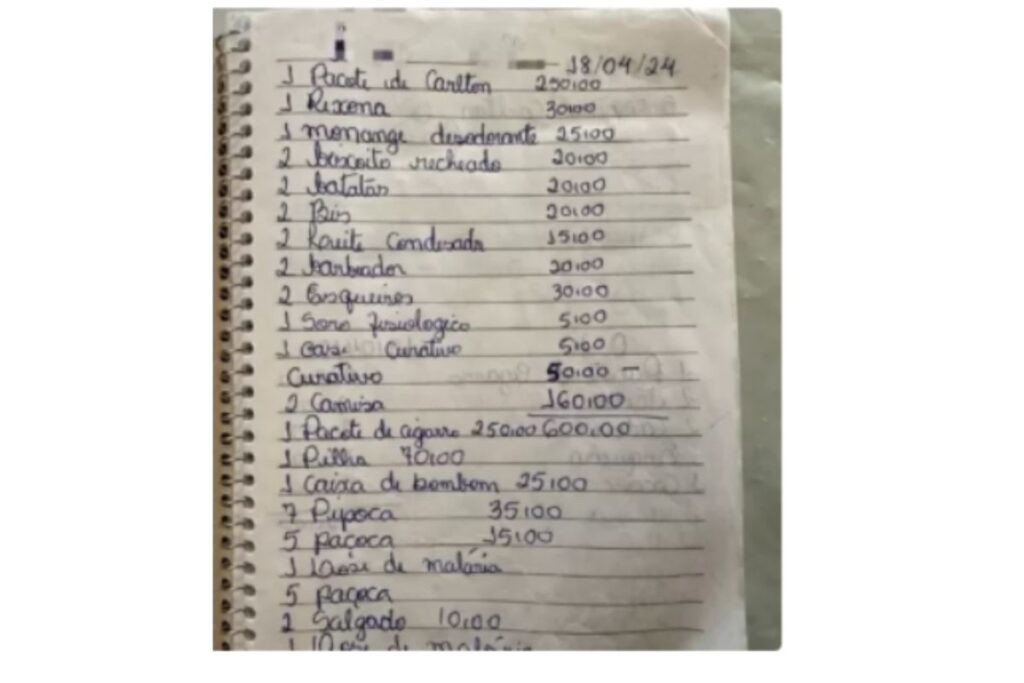 18/04/24
1 Pacote de Carlton 250,00
1 Rexena 30,00
1 monange desodorante 25,00
2 biscoito recheado 20,00
2 batatas 20,00
2 Bis 20,00
2 Condesada 15,00
2 barbeador 20,00
2 Esqueiros 30,00
1 Soro fisiologico 5,00
1 Curativo 5,00
Curativo 50,00 -
2 Camisa 160,00
1 Pacote de cigarro 250,00 600,00
1 Pilha 70,00
1 Caixa de bombom 25,00
7 Pipoca 35,00
5 paçoca 15,00
1 de malária
5 paçoca
2 Salgado 10,00
1 de malária